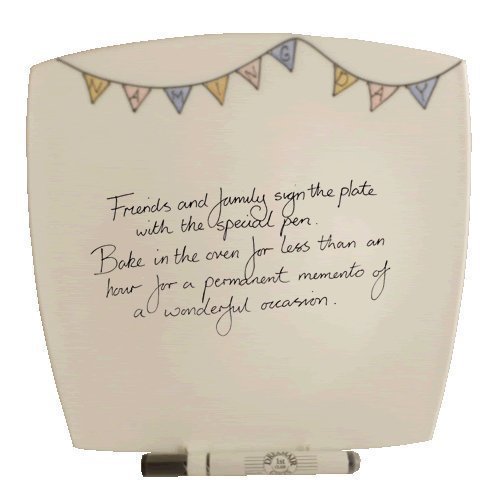 NAMING DAY
Friends and family sign the plate
with the special pen.
Bake in the oven for less than an
hour for a permanent memento of
a wonderful occasion.
1st